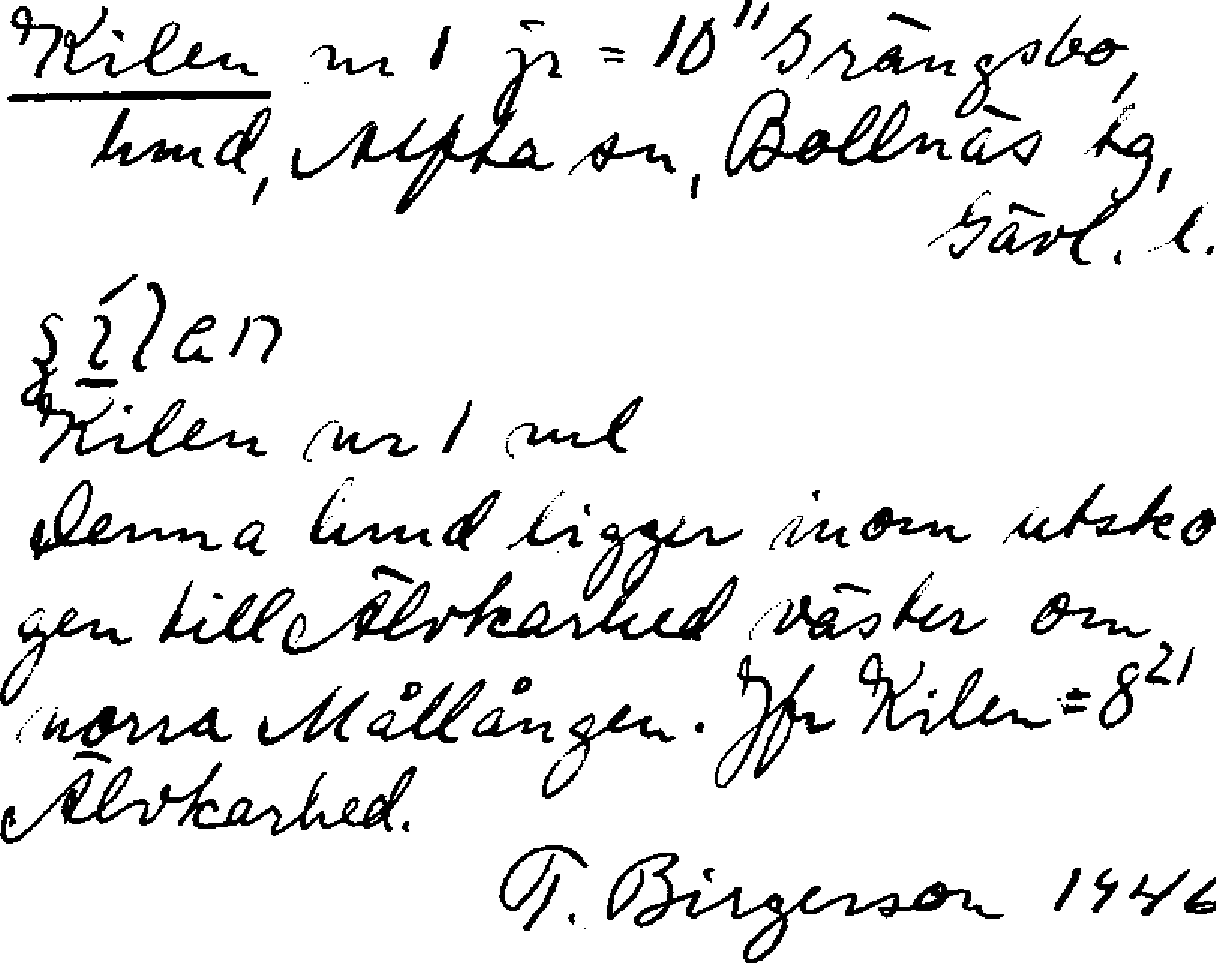 Kilen nr 1 jr = 10¹¹ Grängsbo,
hmd, Alfta sn, Bollnäs tg,
Gävl. l.
Kilen nr 1 ml
Denna hmd ligger inom utsko
gen till Älvkarhed väster om
norra Mållången. Jfr Kilen = 8²¹
Älvkarhed.
T. Birgerson 1946